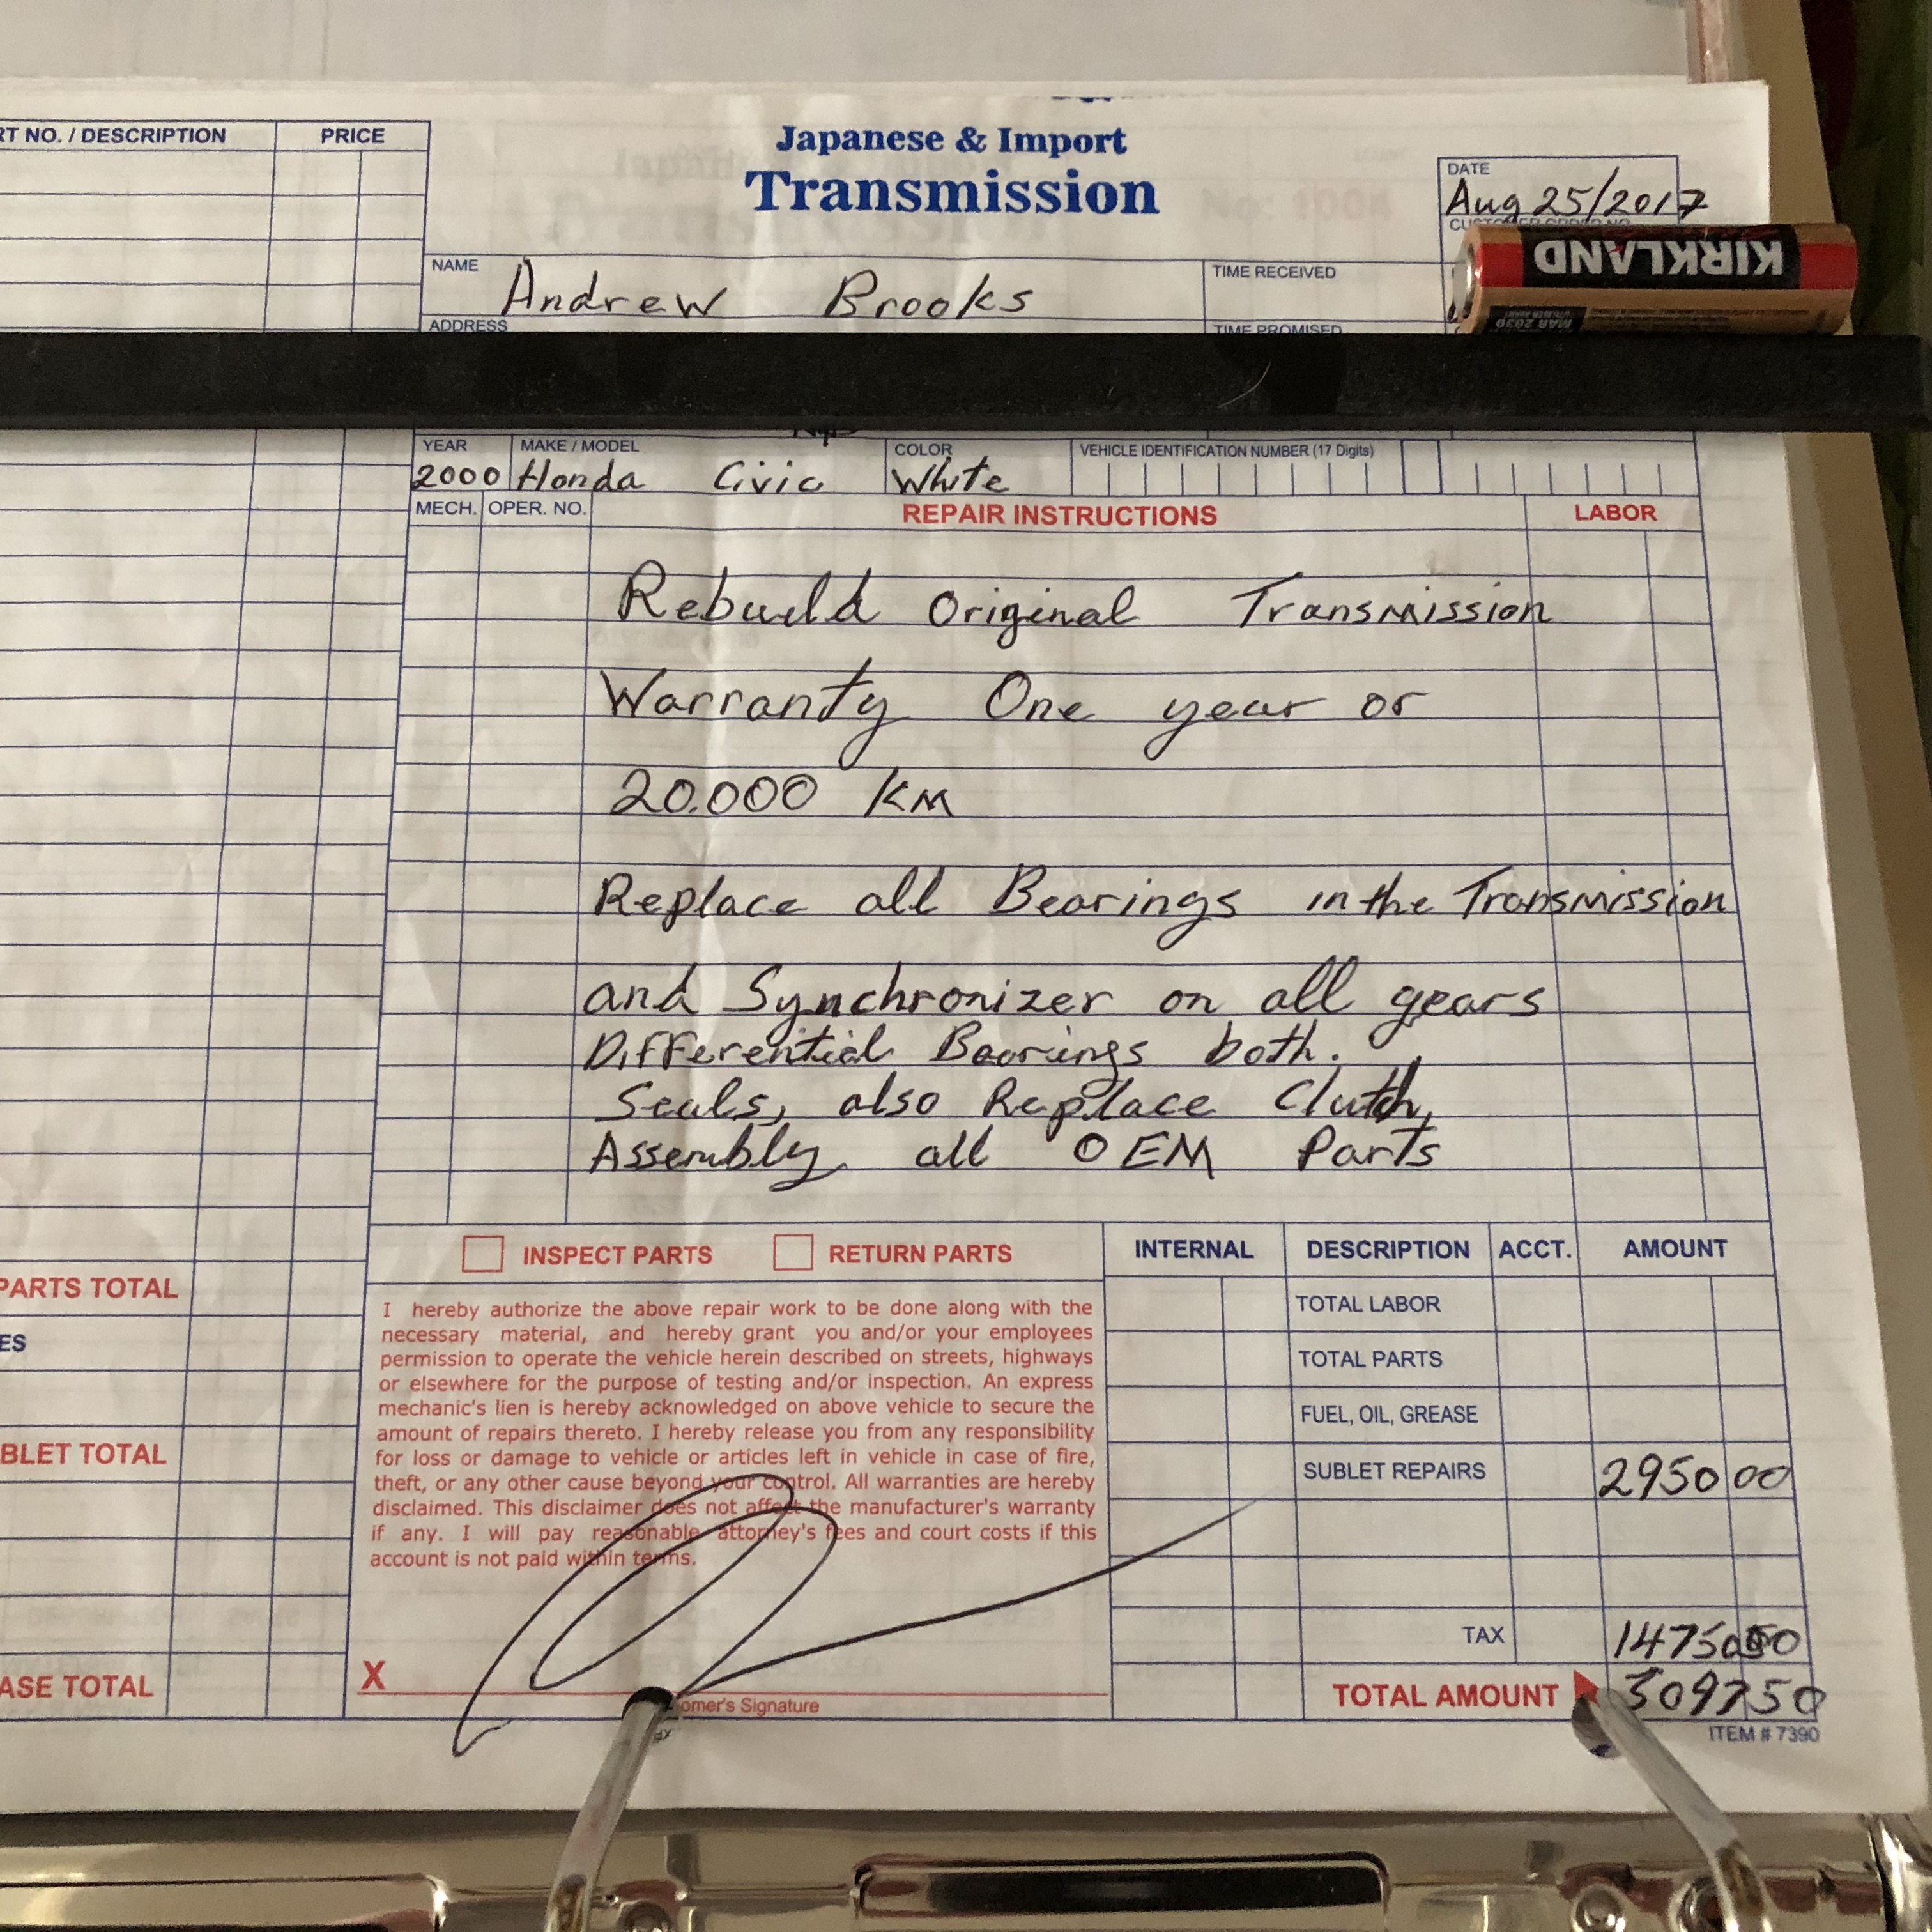 Japanese & Import
Transmission
DATE
Aug 25/2017
RT NO. / DESCRIPTION PRICE
NAME Andrew Brooks TIME RECEIVED
ADDRESS TIME PROMISED
KIRKLAND
YEAR MAKE / MODEL COLOR VEHICLE IDENTIFICATION NUMBER (17 Digits)
2000 Honda Civic White
MECH. OPER. NO. REPAIR INSTRUCTIONS LABOR
Rebuild Original Transmission
Warranty One year or
20.000 KM
Replace all Bearings in the Transmission
and Synchronizer on all gears
Differential Bearings both.
Seals, also Replace Clutch
Assembly all OEM Parts
PARTS TOTAL
ES
BLET TOTAL
ASE TOTAL
INSPECT PARTS RETURN PARTS
I hereby authorize the above repair work to be done along with the
necessary material, and hereby grant you and/or your employees
permission to operate the vehicle herein described on streets, highways
or elsewhere for the purpose of testing and/or inspection. An express
mechanic's lien is hereby acknowledged on above vehicle to secure the
amount of repairs thereto. I hereby release you from any responsibility
for loss or damage to vehicle or articles left in vehicle in case of fire,
theft, or any other cause beyond your control. All warranties are hereby
disclaimed. This disclaimer does not affect the manufacturer's warranty
if any. I will pay reasonable attorney's fees and court costs if this
account is not paid within terms.
X
omer's Signature
INTERNAL DESCRIPTION ACCT. AMOUNT
TOTAL LABOR
TOTAL PARTS
FUEL, OIL, GREASE
SUBLET REPAIRS 2950 00
TAX 147 50
TOTAL AMOUNT 3097 50
ITEM # 7390